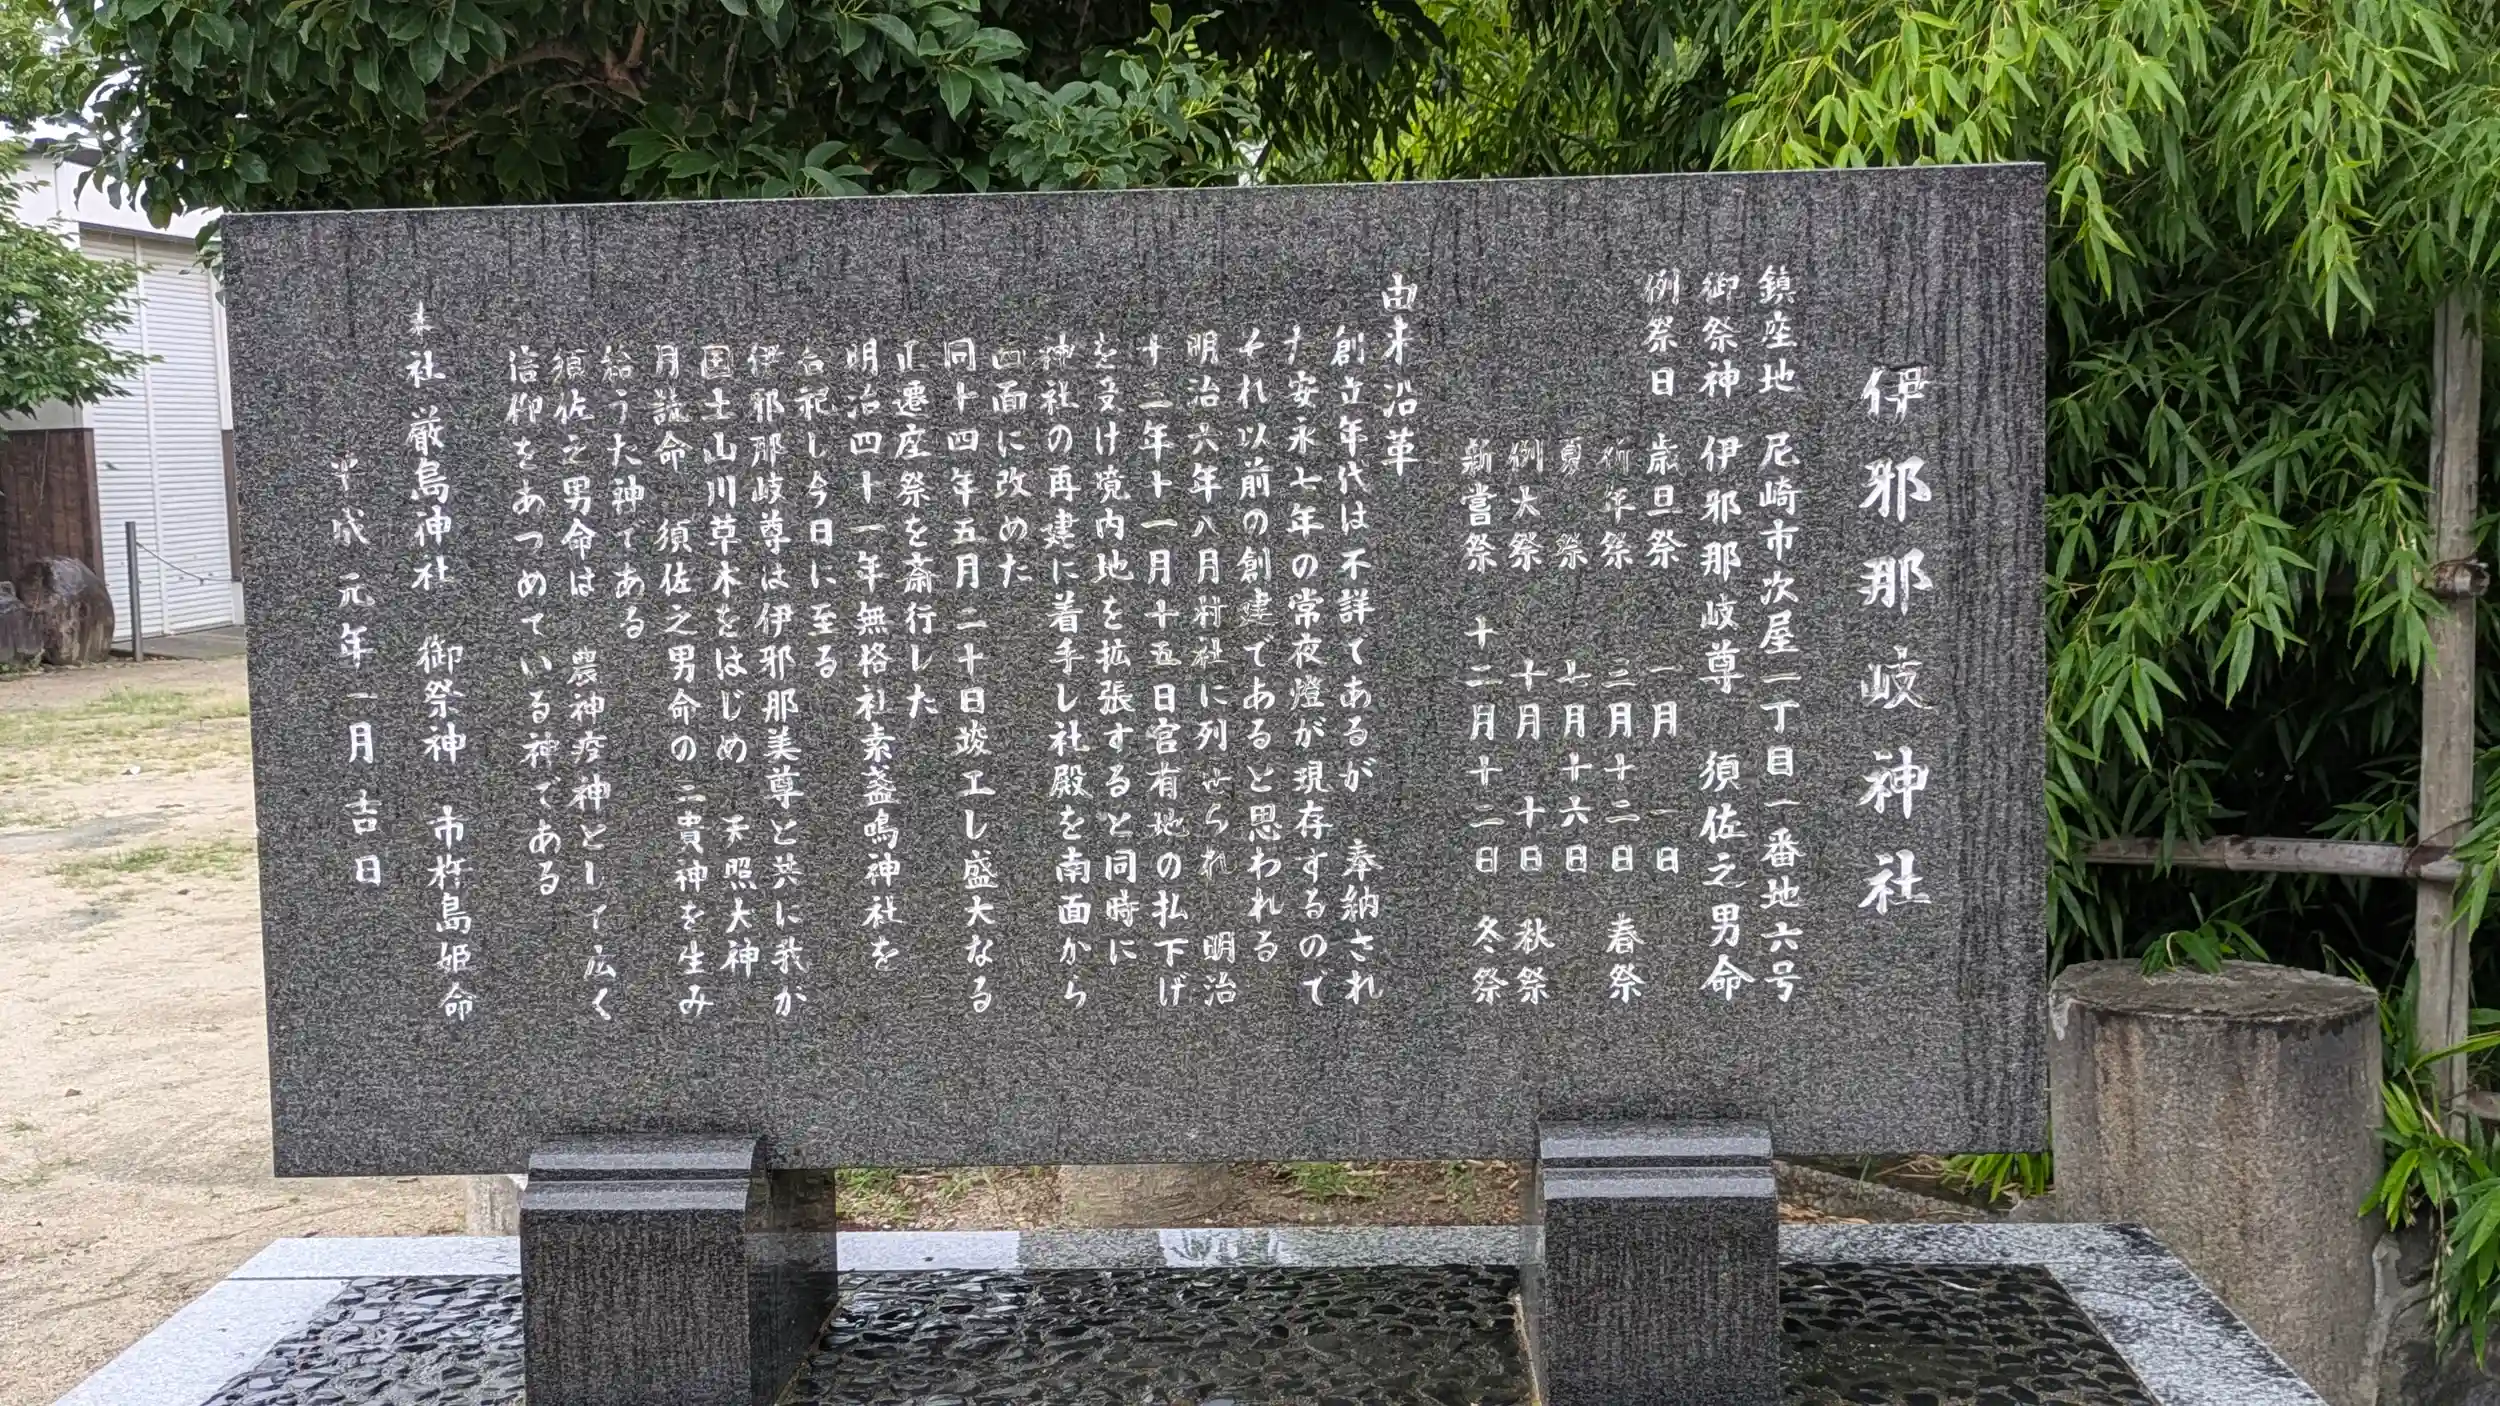 伊邪那岐神社
鎮座地 尼崎市次屋二丁目一番地六号
御祭神 伊邪那岐尊 須佐之男命
例祭日 歳旦祭 一月一日
祈年祭 三月十二日 春祭
夏祭 七月十六日
例大祭 十月十日 秋祭
新嘗祭 十二月十二日 冬祭
由来沿革
創立年代は不詳てあるが 奉納され
た安永七年の常夜燈が現存するので
それ以前の創建であると思われる
明治六年八月村社に列せられ 明治
十二年十一月十五日官有地の払下げ
を受け境内地を拡張すると同時に
神社の再建に着手し社殿を南面から
西面に改めた
同十四年五月二十日竣工し盛大なる
正遷座祭を斎行した
明治四十一年無格社素盞鳴神社を
合祀し今日に至る
伊邪那岐尊は伊邪那美尊と共に我が
国土山川草木をはじめ 天照大神
月読命 須佐之男命の三貴神を生み
給うた神である
須佐之男命は 農神疫神として広く
信仰をあつめている神である
末社 厳島神社 御祭神 市杵島姫命
平成元年一月吉日